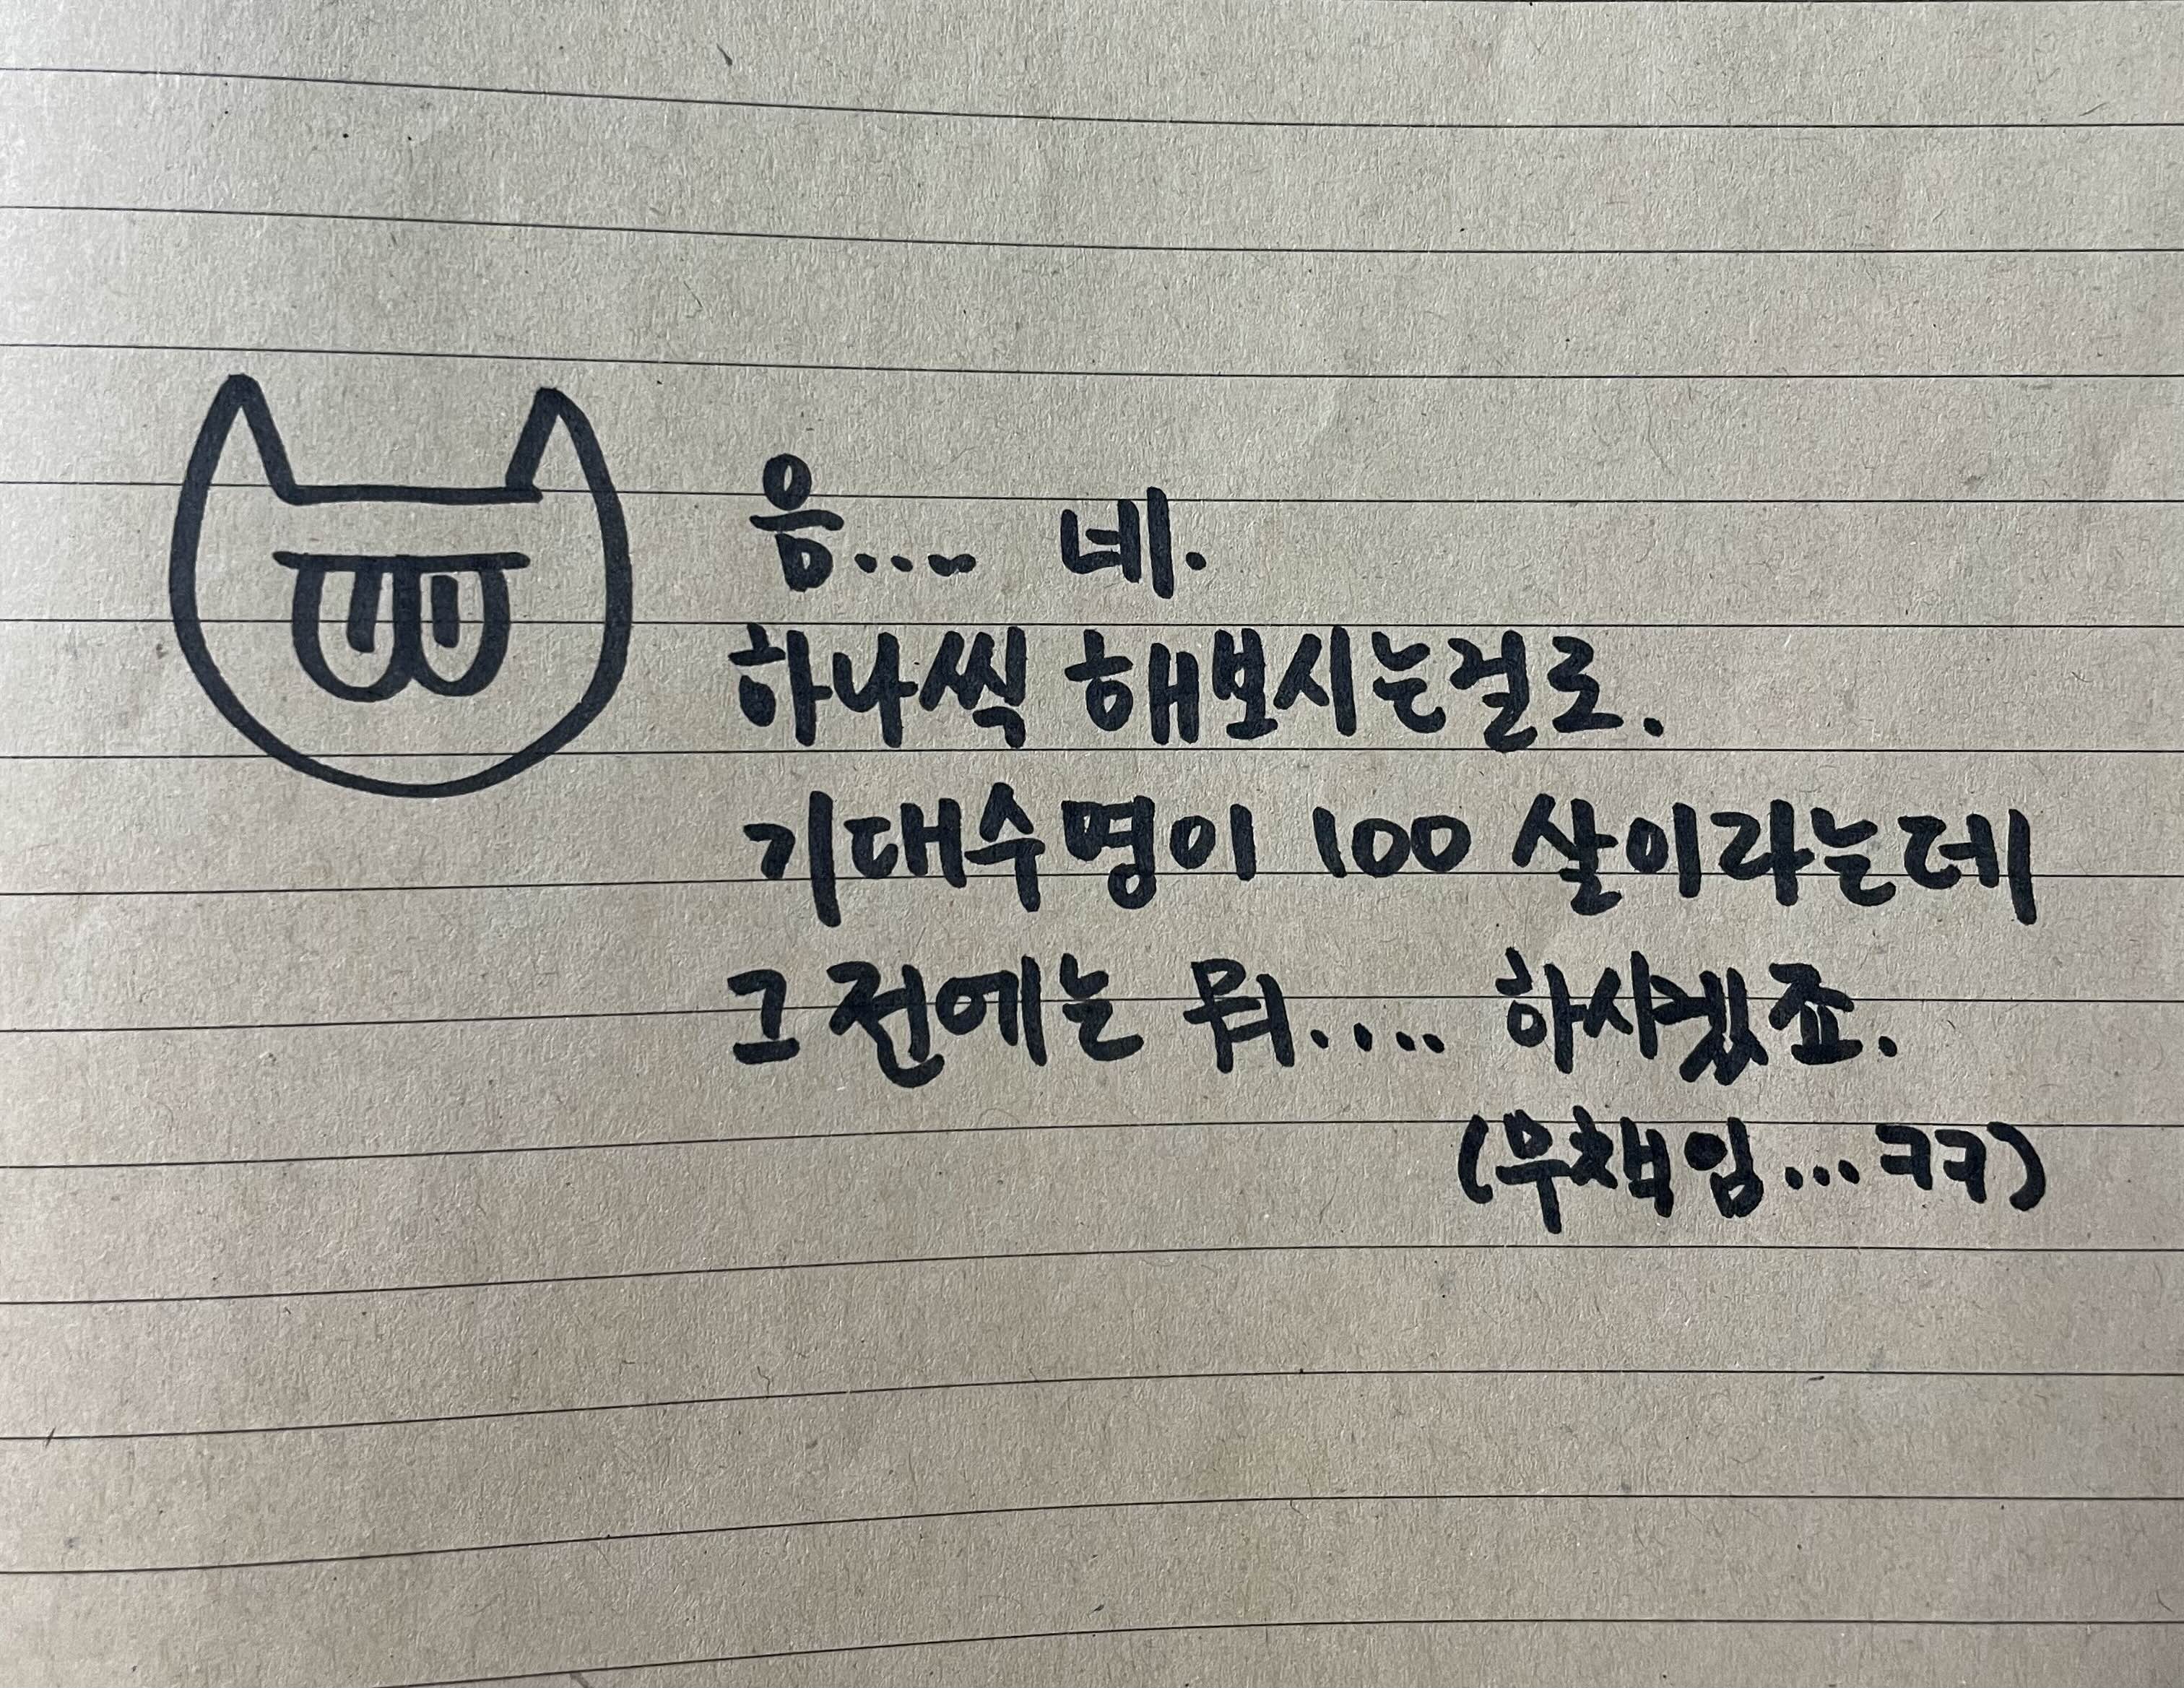 음.... 네.
하나씩 해보시는걸로.
기대수명이 100 살이라는데
그전에는 뭐..... 하시겠죠.
(무책임...ㅋㅋ)